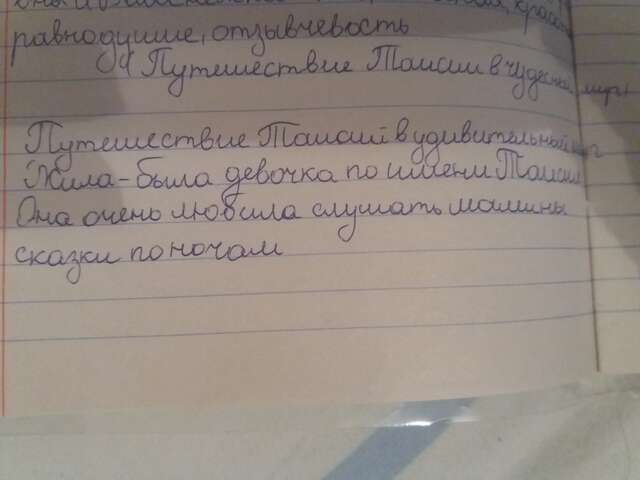 равнодушие, отзывчевость
Путешествие Таисии в чудесный мир
Путешествие Таисии в удивительный
Жила-была девочка по имени Таисия
Она очень любила слушать мамины
сказки по ночам